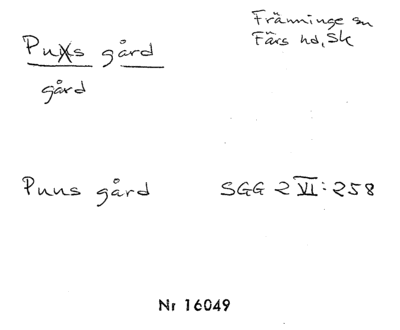 Främminge sn
Färs hd, Sk
Puns gård
gård
Puns gård SGG 2 VI: 258
Nr 16049